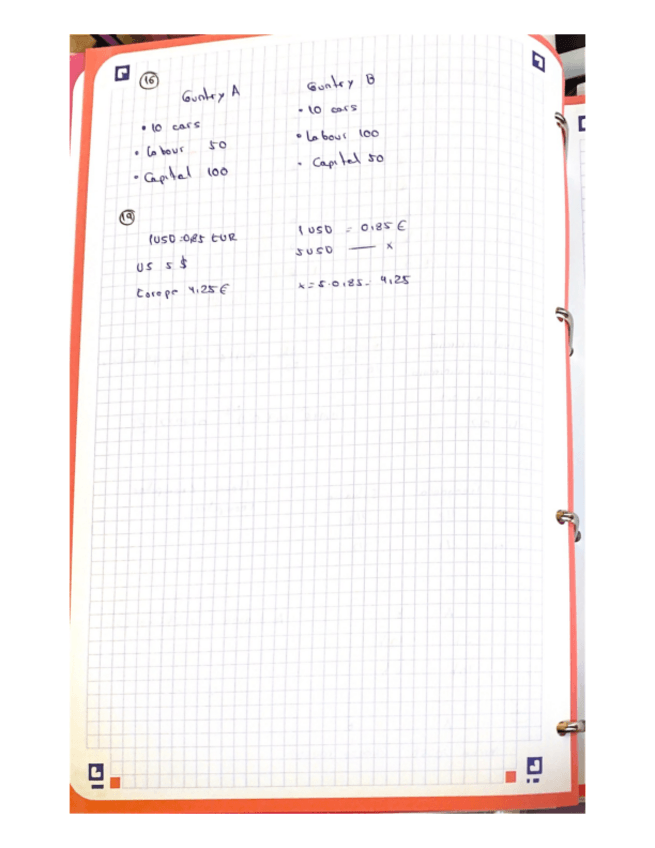 16
Country A
Country B
• 10 cars
• 10 cars
• Labour 50
• Labour 100
• Capital 100
• Capital 50
19
1USD = 0,85 EUR
1 USD = 0,85 €
US 5 $
5 USD — x
Europe 4,25 €
x = 5 · 0,85 = 4,25